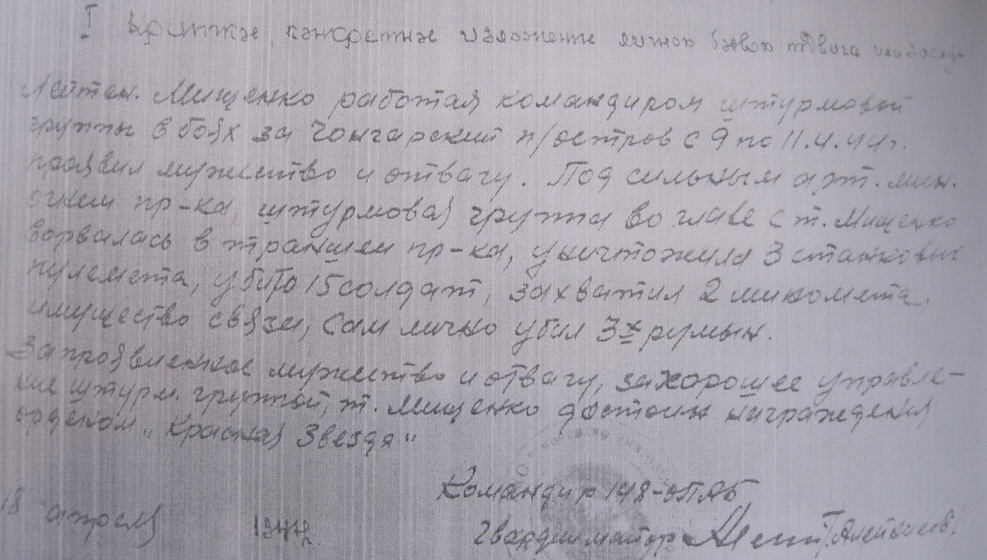 I Краткое, конкретное изложение личного боевого подвига или заслуг
Лейтен. Мищенко работая командиром штурмовой
группы в боях за Гончарский п/остров с 9 по 11.4.44г.
проявил мужество и отвагу. Под сильным арт. мин.
огнем пр-ка, штурмовая группа во главе с т. Мищенко
ворвалась в траншеи пр-ка, уничтожила 3 станковых
пулемета, убито 15 солдат, захватил 2 миномета,
имущество связи, сам лично убил 3х румын.
За проявленное мужество и отвагу, за хорошее управле-
ние штурм. группой, т. Мищенко достоин награждения
орденом „Красная Звезда"
Командир 148-ОПАБ
18 апреля 1944г. Гвардии майор